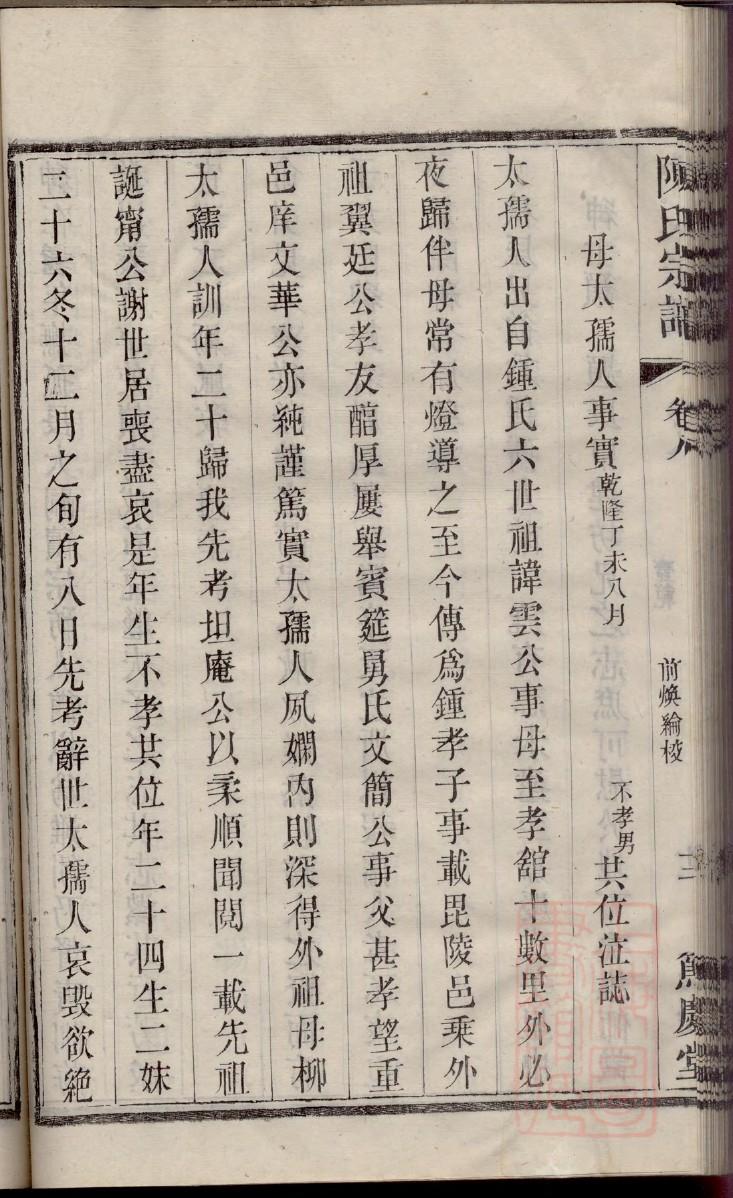 陳氏宗譜 卷八 前煥綸棱 三 篤慶堂
母太孺人事實 乾隆丁未八月 不孝男共位泣誌
太孺人出自鍾氏六世祖諱雲公事母至孝舘十數里外必
夜歸伴母常有燈導之至今傳爲鍾孝子事載毘陵邑乗外
祖翼廷公孝友醕厚屢舉賓筵舅氏文簡公事父甚孝望重
邑庠文華公亦純謹篤實太孺人夙嫻內則深得外祖母柳
太孺人訓年二十歸我先考坦庵公以柔順聞閱一載先祖
誕甯公謝世居喪盡哀是年生不孝共位年二十四生二妹
二十六冬十二月之旬有八日先考辭世太孺人哀毁欲絶